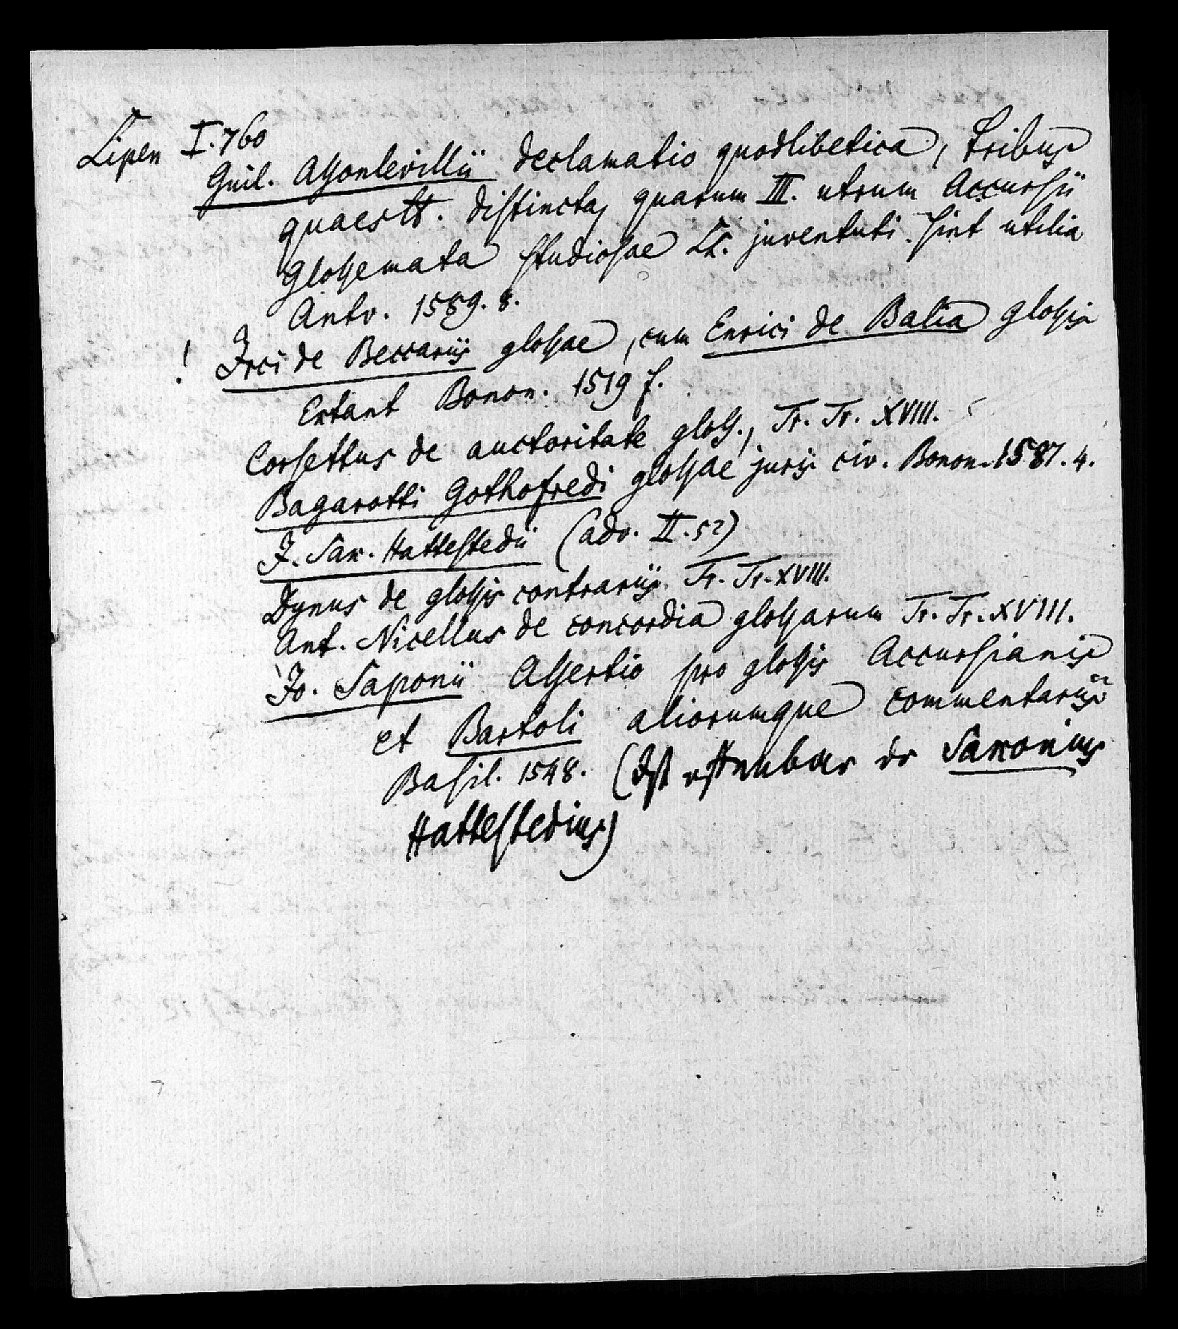 Lipen I. 760
Guil. Assonlevillii declamatio quodlibetica, tribus
quaestt. distincta, quarum III. utrum Accursii
Glossemata studiosae LL. juventuti sint utilia
Antv. 1589. 8.
! Frci de Beccariis glossae, cum Enrici de Balia glossis
Extant Bonon. 1519 f.
Corsettus de auctoritate gloss., Tr. Tr. XVIII.
Bagarotti Gothofredi glossae juris civ. Bonon. 1587. 4.
J. Sax. Hattestedii (adv. II. 52)
Dynus de glossis contrariis. Tr. Tr. XVIII.
Ant. Nicellus de concordia glossarum Tr. Tr. XVIII.
Jo. Saponii Assertio pro glossis Accursianis
et Bartoli aliorumque commentariis
Basil. 1548. (Ist offenbar der Saxonius
Hattestedius)